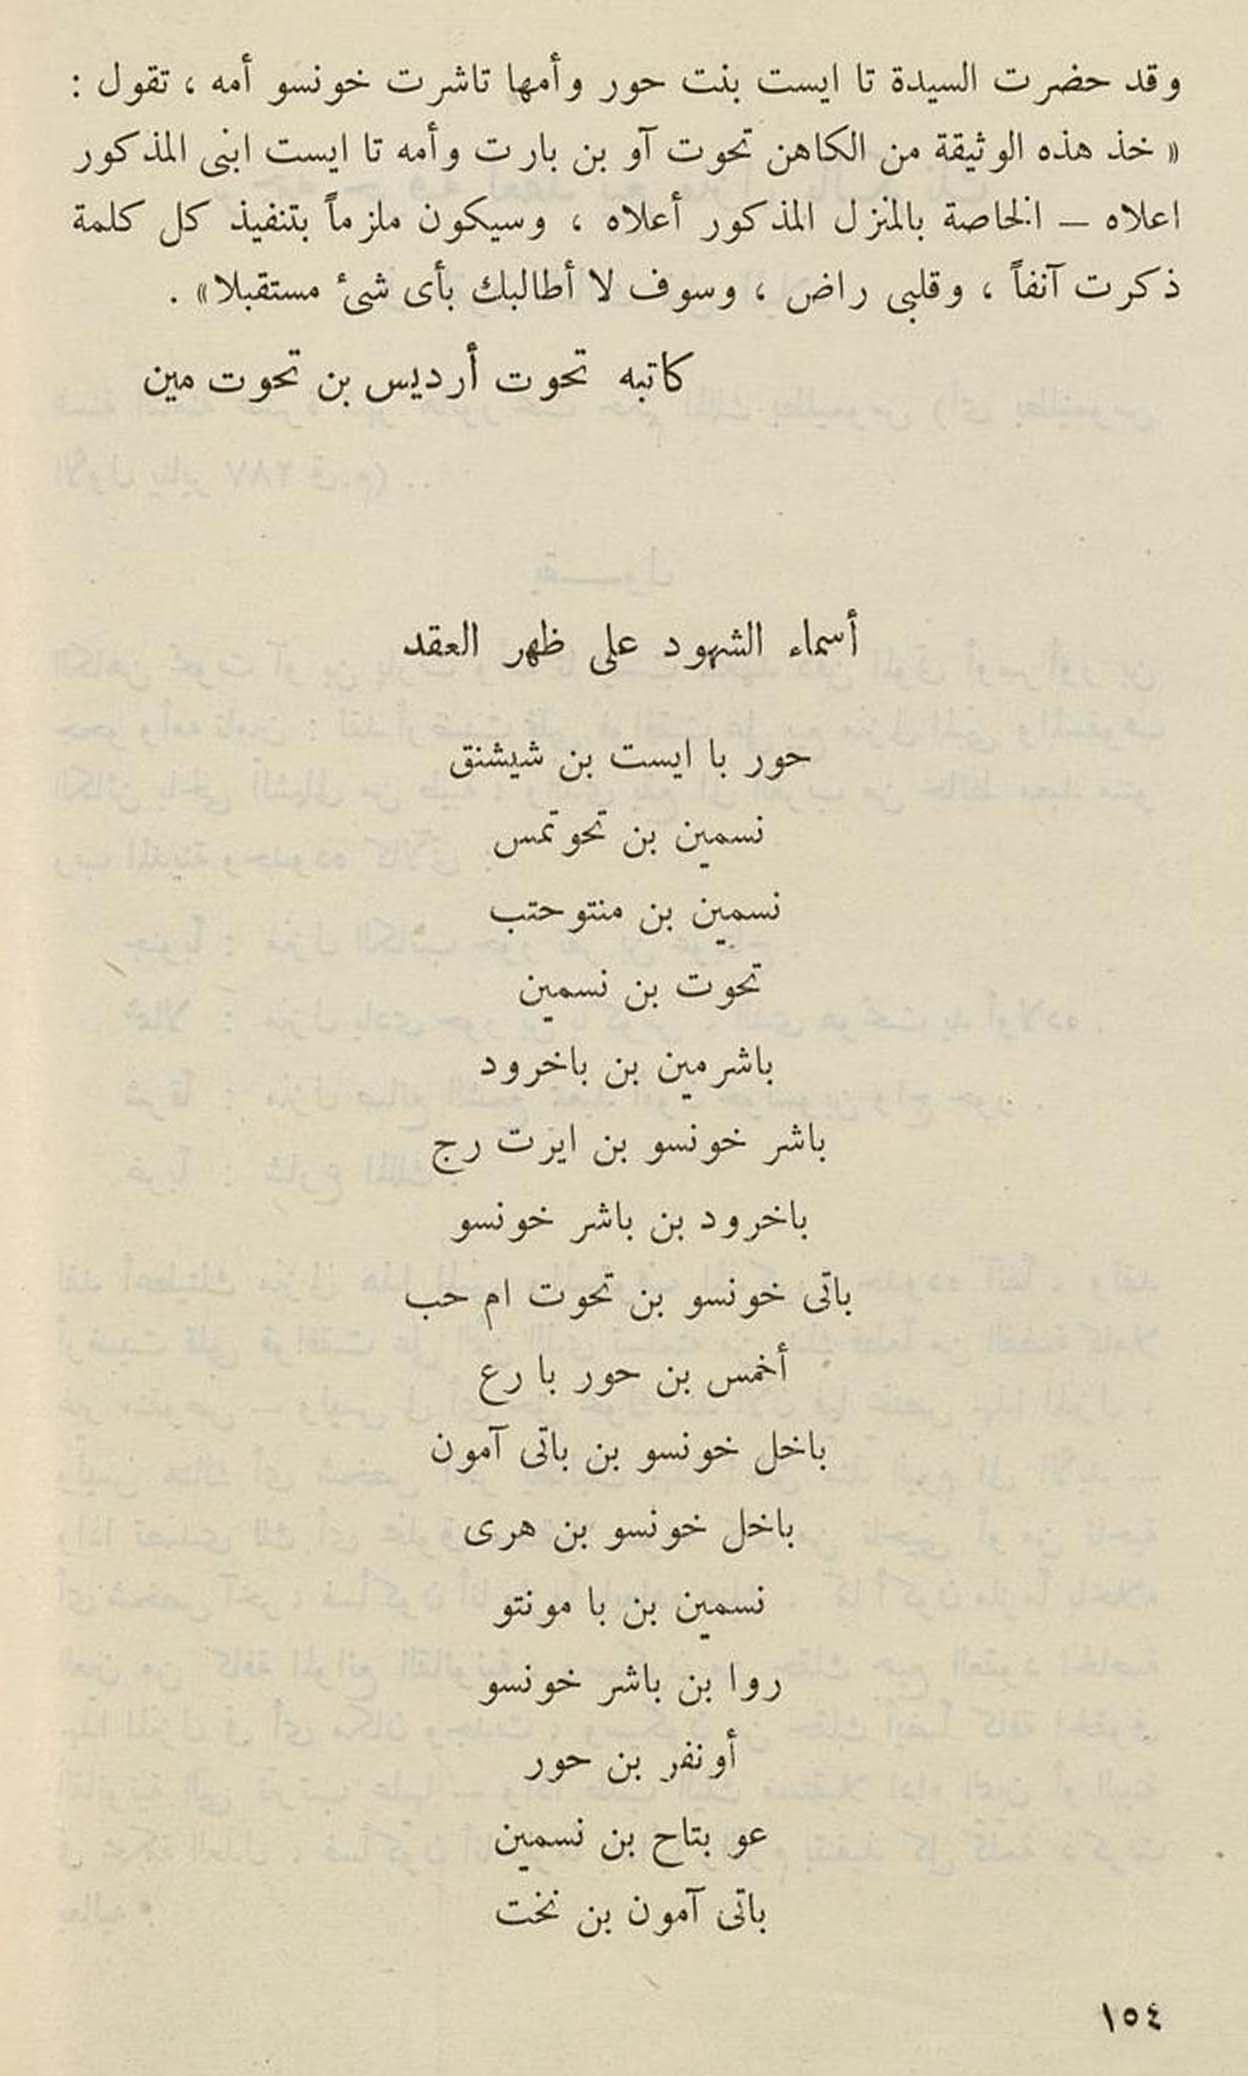 وقد حضرت السيدة تا ايست بنت حور وأمها تاشرت خونسو أمه ، تقول :
« خذ هذه الوثيقة من الكاهن تحوت آو بن بارت وأمه تا ايست ابنى المذكور
اعلاه — الخاصة بالمنزل المذكور أعلاه ، وسيكون ملزماً بتنفيذ كل كلمة
ذكرت آنفاً ، وقلبى راض ، وسوف لا أطالبك بأى شىء مستقبلا» .
كاتبه تحوت أرديس بن تحوت مين
أسماء الشهود على ظهر العقد
حور با ايست بن شيشنق
نسمين بن تحوتمس
نسمين بن منتوحتب
تحوت بن نسمين
باشرمين بن باخرود
باشر خونسو بن ايرت رج
باخرود بن باشر خونسو
باتى خونسو بن تحوت ام حب
أخمس بن حور با رع
باخل خونسو بن باتى آمون
باخل خونسو بن هرى
نسمين بن با مونتو
روا بن باشر خونسو
أونفر بن حور
عو بتاح بن نسمين
باتى آمون بن نخت
١٥٤